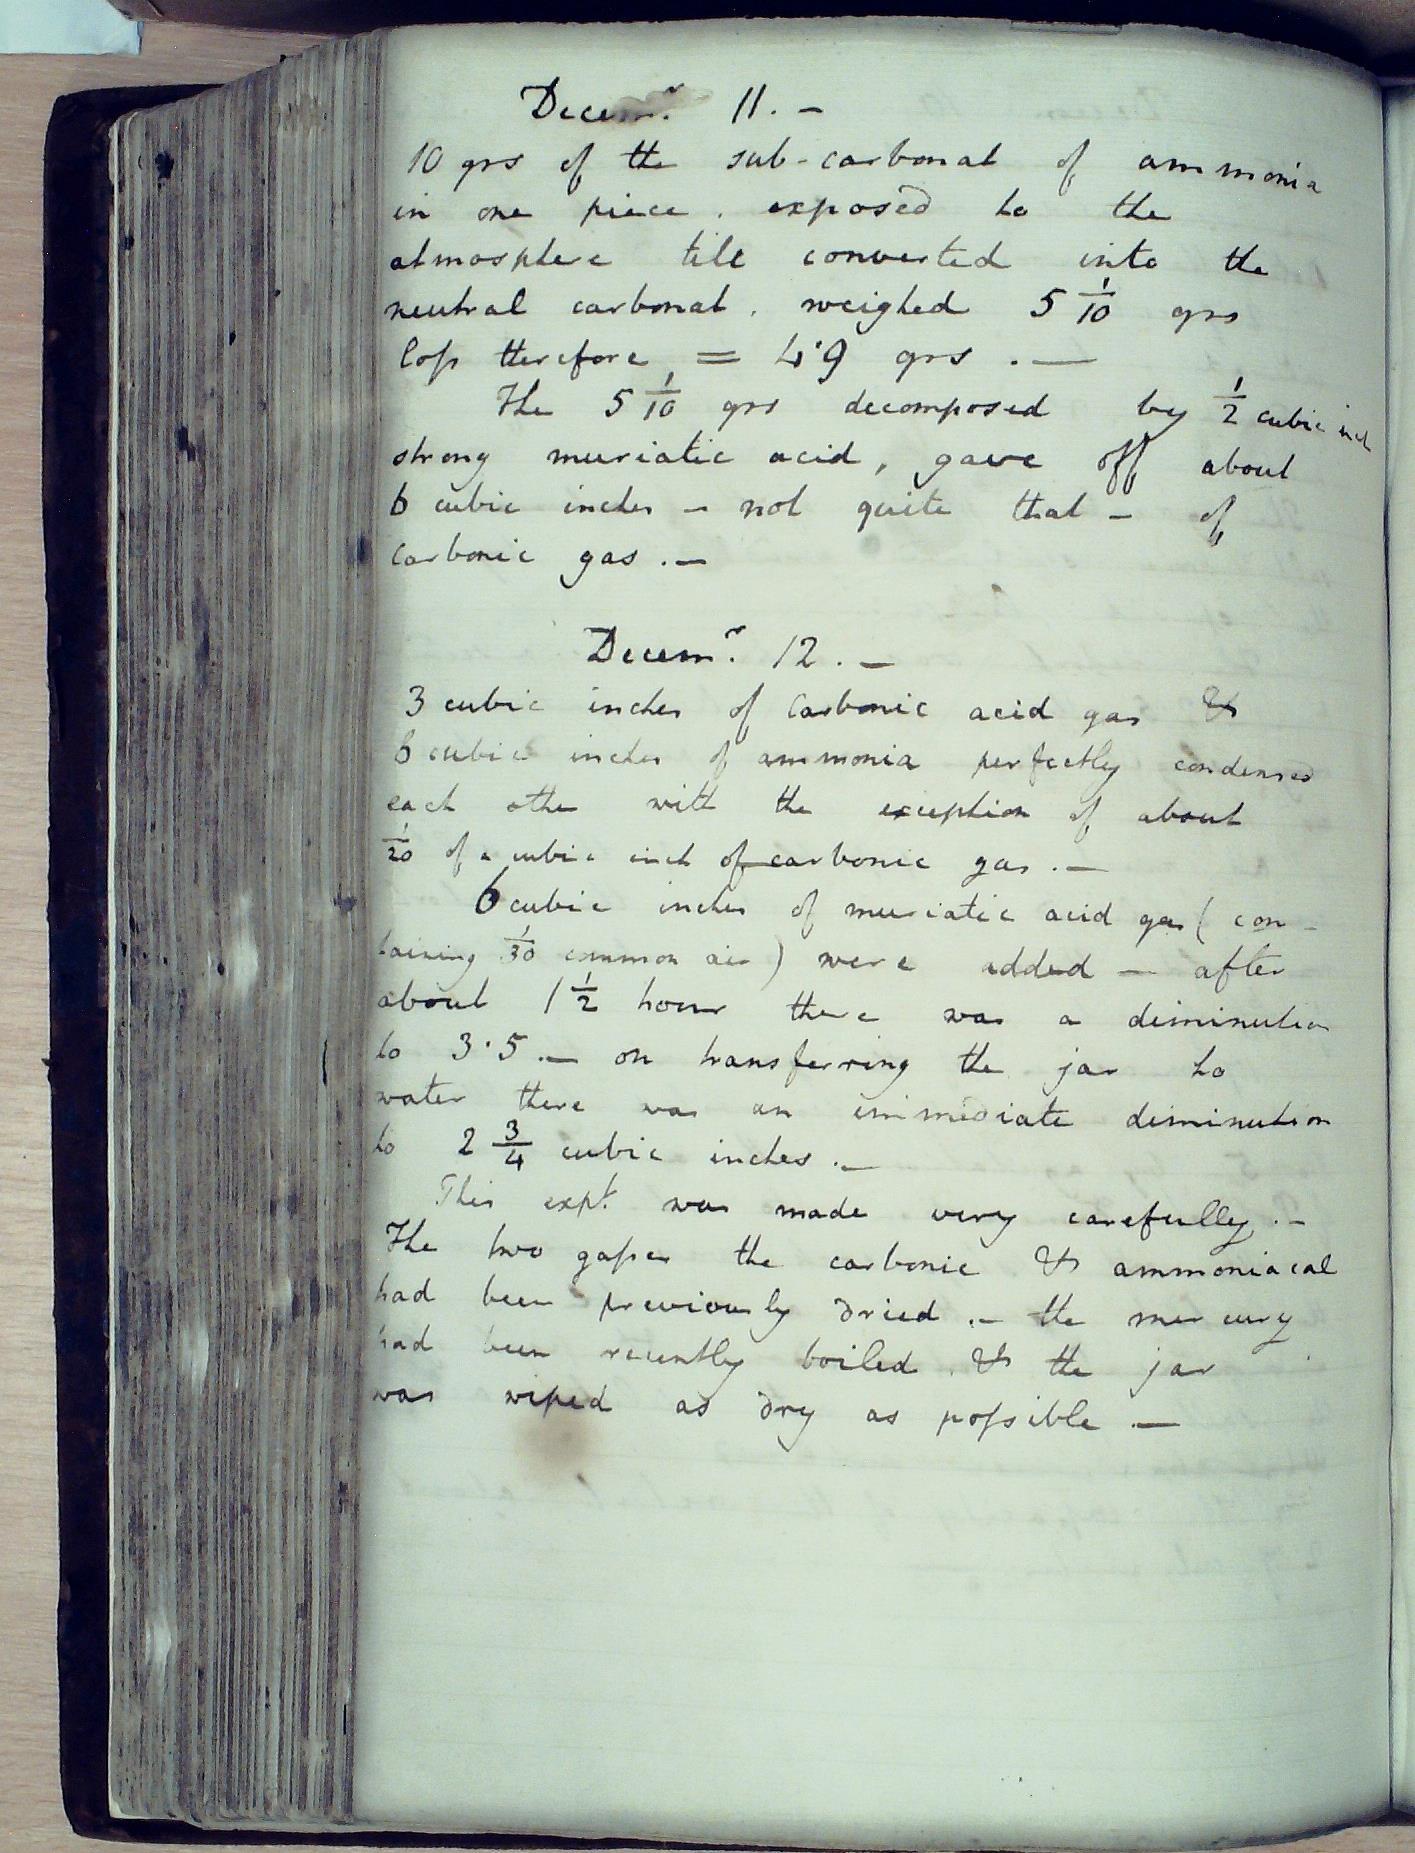 Decemr. 11. –
10 grs of the sub-carbonat of ammonia
in one piece. exposed to the
atmosphere till converted into the
neutral carbonat. weighed 5 1/10 grs
loſs therefore = 4·9 grs. —
The 5 1/10 grs decomposed by 1/2 cubic inch
strong muriatic acid, gave off about
6 cubic inches – not quite that – of
carbonic gas. –
Decemr. 12. –
3 cubic inches of carbonic acid gas &
6 cubic inches of ammonia perfectly condensed
each other with the exception of about
1/20 of a cubic inch of carbonic gas. —
6 cubic inches of muriatic acid gas (con-
taining 1/30 common air) were added – after
about 1 1/2 hour there was a diminution
to 3·5. – on transferring the jar to
water there was an immediate diminution
to 2 3/4 cubic inches. –
This expt. was made very carefully. –
The two gaſses the carbonic & ammoniacal
had been previously dried. – the mercury
had been recently boiled. & the jar
was wiped as dry as poſsible —